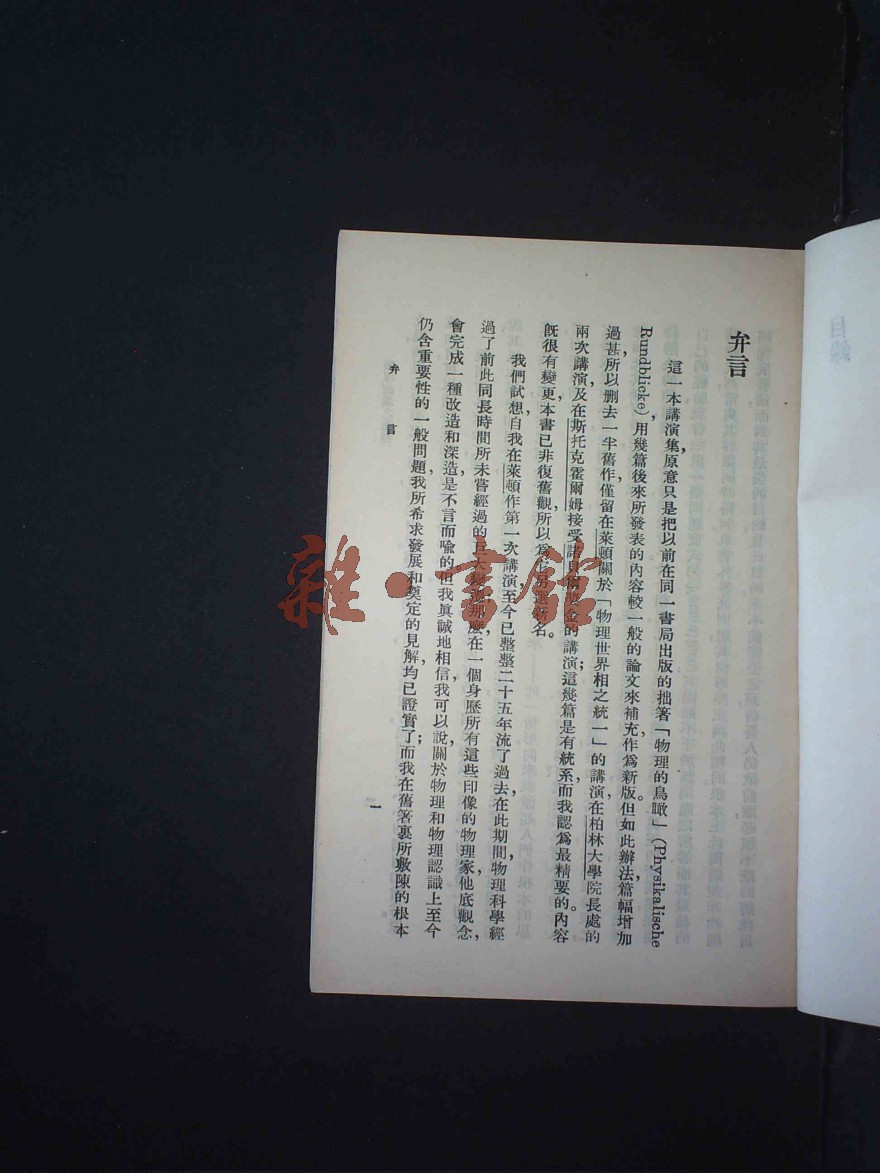 弁言
這一本講演集，原意只是把以前在同一書局出版的拙著「物理的鳥瞰」(Physikalische
Rundblicke)，用幾篇後來所發表的內容較一般的論文來補充作爲新版。但如此辦法，篇幅增加
過甚，所以刪去一半舊作，僅留在萊頓關於「物理世界相之統一」的講演，在柏林大學院長處的
兩次講演，及在斯托克霍爾姆接受諾貝爾獎金的講演；這幾篇是有統系而我認爲最精要的。內容
旣很有變更，本書已非復舊觀，所以爲它另選新名。
我們試想自我在萊頓作第一次講演至今已整整二十五年流了過去，在此期間，物理科學經
過了前此同長時間所未嘗經過的巨大變遷，那麼在一個身歷所有這些印像的物理家，他底觀念
會完成一種改造和深造，是不言而喩的。但我眞誠地相信，我可以說，關於物理和物理認識上至今
仍含重要性的一般問題，我所希求發展和奠定的見解，均已證實了；而我在舊著裏所敷陳的根本
弁言
一
目錄
雜·書館